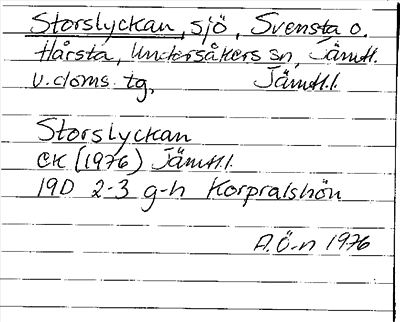 Storslyckan, sjö, Svensta o.
Hårsta, Undersåkers sn, Jämtl.
v. doms. tg, Jämtl.l.
Storslyckan
CK (1976) Jämtl.l.
19D 2-3 g-h Korpralshön
A.Ö-n 1976